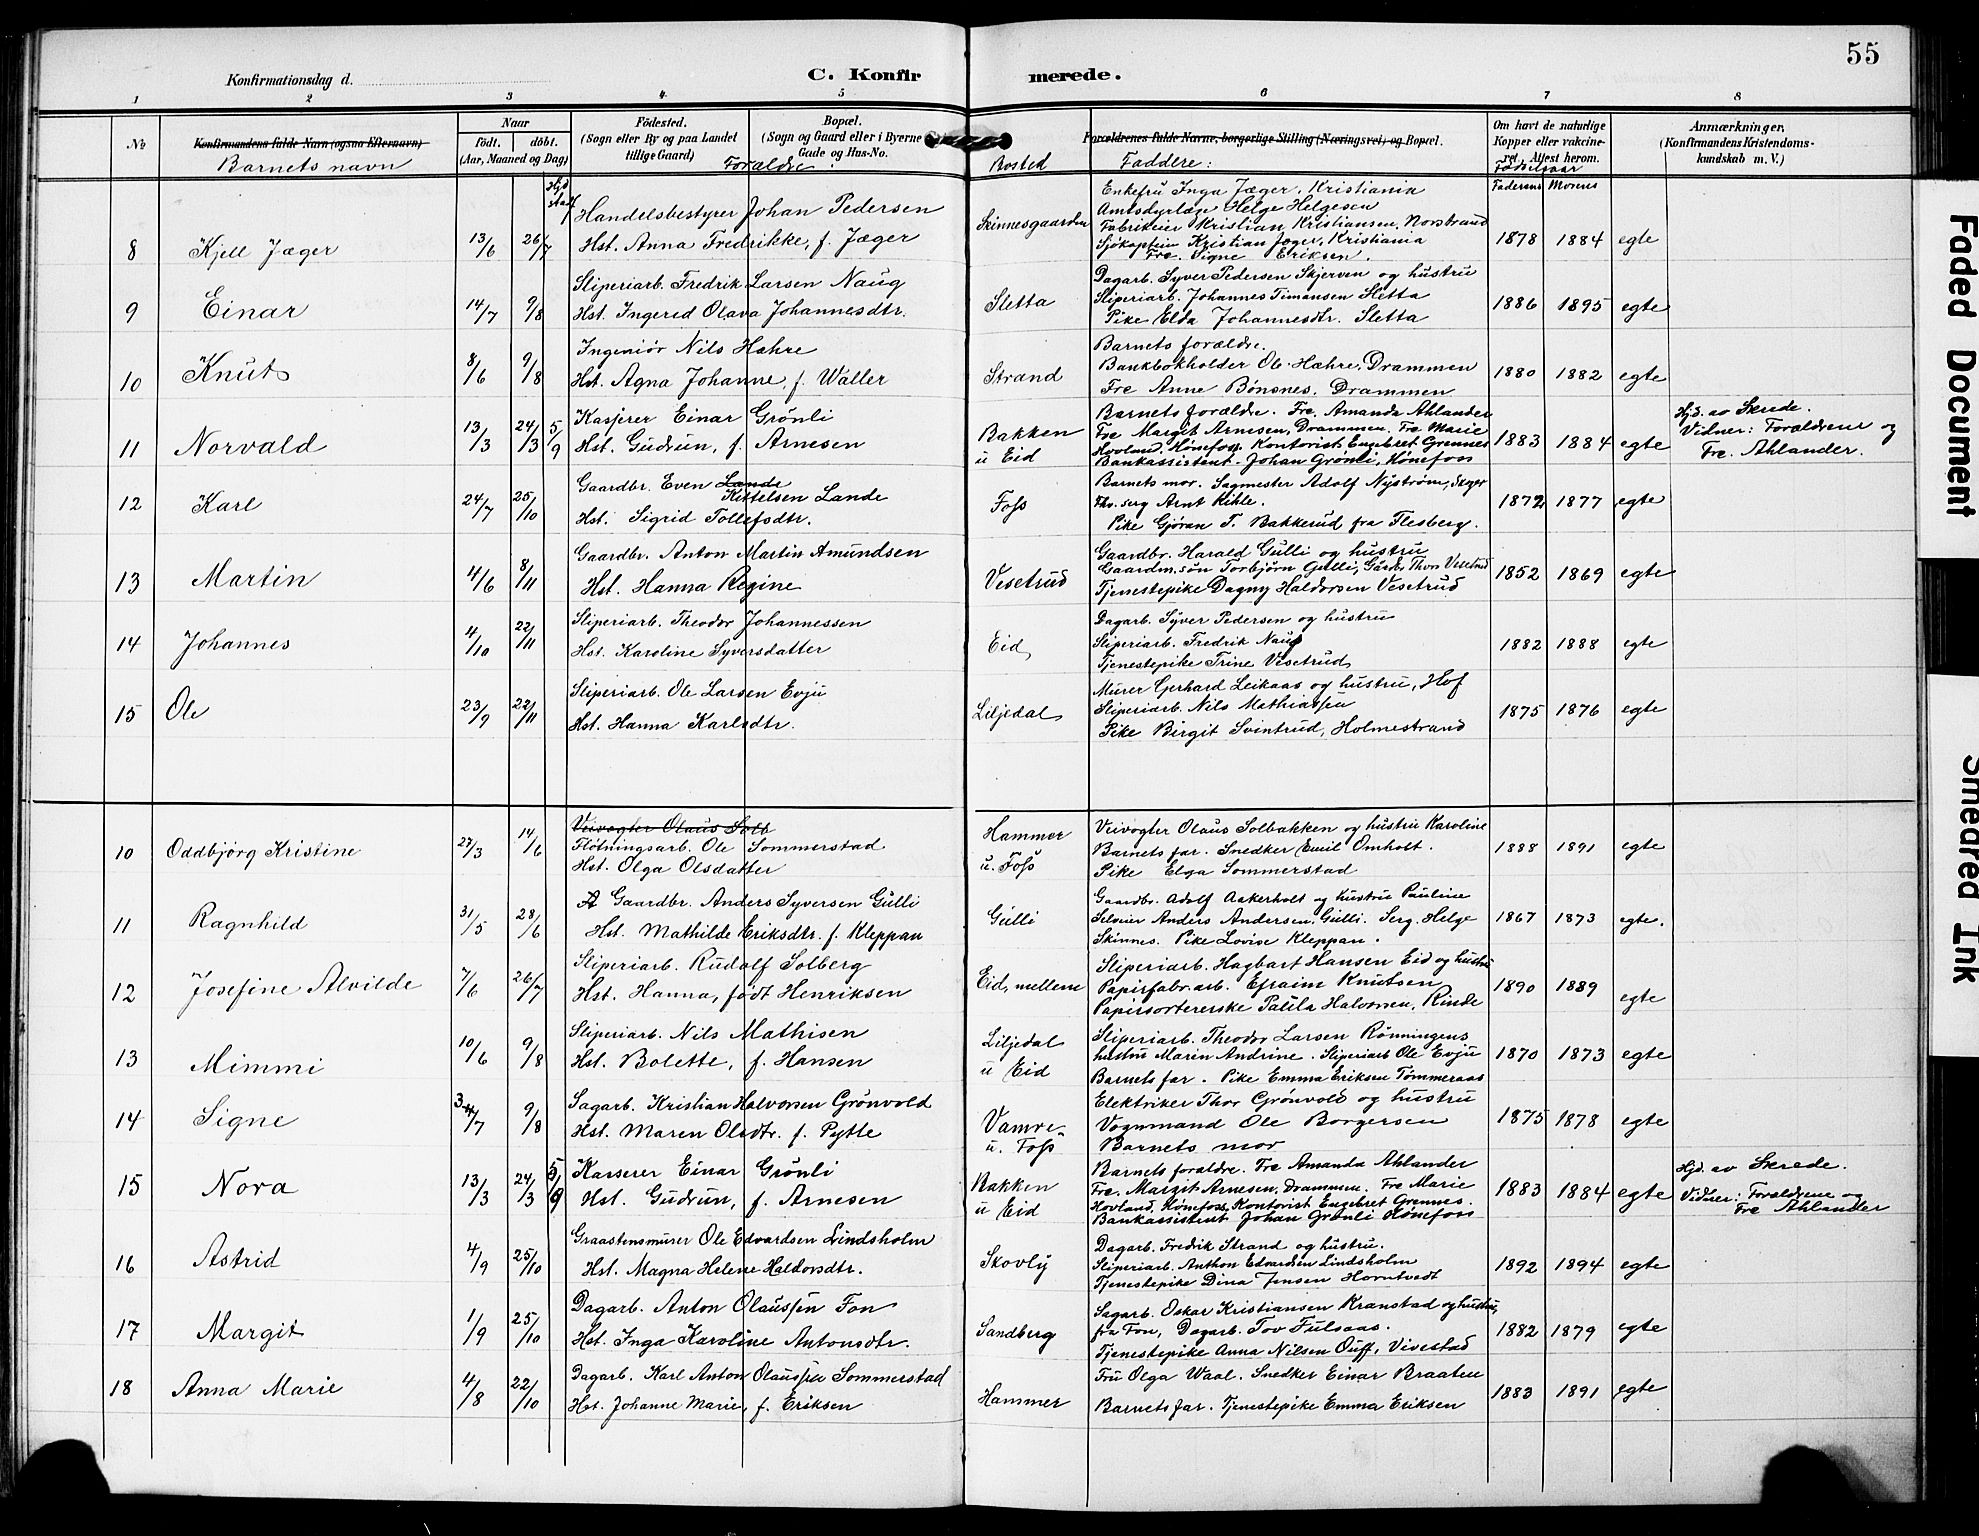 55
Konfirmationsdag d.
C. Konfir merede.
1 2 3 4 5 6 7 8
No Konfirmandens fulde Navn (ogsaa Efternavn) Naar Födested. Bopæl. Forældrenes fulde Navne, borgerlige Stilling (Næringsvei) og Bopæl. Om havt de naturlige Anmærkninger.
födt. döbt. (Sogn eller By og paa Landet (Sogn og Gaard eller i Byerne Kopper eller vakcine- (Konfirmandens Kristendoms-
(Aar, Maaned og Dag) tillige Gaard) Gade og Hus-No. ret, Attest herom. kundskab m. V.)
Barnets navn Foraldre: Bosted Faddere: Födselsaar
Hjd. Faderens Morens
8 Kjell Jæger 13/6 26/7 Handelsbestyrer Johan Pedersen
Hst. Anna Fredrikke, f. Jæger
Skinnesgaarden
Enkefru Inga Jæger, Kristiania
Amtsdyrlæge Helge Helgesen
Fabrikeier Kristian Kristiansen, Norstrand
Sjökaptein Kristian Jæger, Kristiania
Frk. Signe Eriksen.
1878 1884 egte
9 Einar 14/7 9/8 Sliperiarb. Fredrik Larsen Naug
Hst. Ingerid Olava Johannesdtr.
Sletta
Dagarb. Syver Pedersen Skjerven og hustru
Sliperiarb. Johannes Timansen Sletta
Pike Elda Johannesdtr. Sletta
1886 1895 egte
10 Knut 8/6 9/8 Ingeniör Nils Hæhre
Hst. Agna Johanne, f. Waller
Strand
Barnets foraldre.
Bankbokholder Ole Hæhre, Drammen
Frk Anne Bönsnes, Drammen
1880 1882 egte
11 Norvald 13/3 24/3 5/9 Kasserer Einar Grönli
Hst. Gudrun, f. Arnesen
Bakken
u Eid
Barnets foraldre. Frk. Amanda Ahlander
Frk Margit Arnesen, Drammen. Frk Marie
Hovland, Hönefoss. Kontorist Engebret Grennes
Bankassistent Johan Grönli, Hönefoss
1883 1884 egte
Hjd. av Skrede.
Vidner: Foraldrene og
Frk. Ahlander.
12 Karl 24/7 25/10 Gaardbr. Even Lande
Kittelsen Lande
Hst. Sigrid Tollefsdtr.
Foss
Barnets mor. Sagmester Adolf Nyström,
serg Arnt Kihle.
Pike Gjöran T. Bakkerud fra Flesberg.
1872 1877 egte
13 Martin 4/6 8/11 Gaardbr. Anton Martin Amundsen
Hst. Hanna Regine
Vesetrud
Gaardbr. Harald Gulli og hustru
Gaardm.sön Torbjörn Gulli, Thov Vesetrud
Tjenestepike Dagny Haldorsen Vesetrud
1852 1869 egte
14 Johannes 4/10 22/11 Sliperiarb. Theodor Johannessen
Hst. Karoline Syversdatter
Eid
Dagarb. Syver Pedersen og hustru
Sliperiarb. Fredrik Naug
Tjenestepike Trine Vesetrud
1882 1888 egte
15 Ole 23/9 22/11 Sliperiarb. Ole Larsen Evju
Hst. Hanna Karlsdtr.
Liljedal
Murer Gerhard Leikaas og hustru, Hof
Sliperiarb. Nils Mathiassen
Pike Birgit Svintrud, Holmestrand
1875 1876 egte
10 Oddbjörg Kristine 27/3 14/6 Veivogter Olaus Solb
Flötningsarb. Ole Sommerstad
Hst. Olga Olsdatter
Hammer
u. Foss
Veivogter Olaus Solbakken og hustru Karoline
Barnets far. Snedker Emil Omholt.
Pike Elga Sommerstad
1888 1891 egte
11 Ragnhild 31/5 28/6 Gaardbr. Anders Syversen Gulli
Hst. Mathilde Eriksdtr. f. Kleppan
Gulli
Gaardbr. Adolf Aakerholt og hustru Pauline
Selveier Anders Andersen, Gulli. Serg. Helge
Skinnes. Pike Lovise Kleppan.
1867 1873 egte.
12 Josefine Alvilde 7/6 26/7 Sliperiarb. Rudolf Solberg
Hst. Hanna, födt Henriksen
Eid, mellem
Sliperiarb. Hagbart Hansen Eid og hustru
Papirfabr.arb. Efraim Knutsen
Papirsortererske Paula Halvorsen, Rinde
1890 1889 egte
13 Mimmi 10/6 9/8 Sliperiarb. Nils Mathisen
Hst. Bolette, f. Hansen
Liljedal
u Eid
Sliperiarb. Theodor Larsen Rönningens
hustru Marin Andrine. Sliperiarb Ole Evju
Barnets far. Pike Emma Eriksen Tömmeraas
1870 1873 egte
14 Signe 3/7 9/8 Sagarb. Kristian Halvorsen Grönvold
Hst. Maren Olsdtr. f. Pytte
Vamre
u. Foss
Elektriker Thor Grönvold og hustru
Vognmand Ole Borgersen
Barnets mor
1875 1878 egte
15 Nora 13/3 24/3 5/9 Kasserer Einar Grönli
Hst. Gudrun, f. Arnesen
Bakken
u Eid
Barnets foraldre. Frk Amanda Ahlander
Frk. Margit Arnesen, Drammen. Frk Marie
Hovland, Hönefoss, Kontorist Engebret Grennes.
Bankassistent Johan Grönli Hönefoss
1883 1884 egte
Hjd. av Skrede.
Vidner: Foraldrene og
Frk Ahlander
16 Astrid 4/9 25/10 Graastensmurer Ole Edvardsen Lindsholm
Hst. Magna Helene Haldorsdtr.
Skovly
Dagarb. Fredrik Strand og hustru.
Sliperiarb. Anthon Edvardsen Lindsholm
Tjenestepike Dina Jensen Horntvedt
1892 1894 egte
17 Margit 1/9 25/10 Dagarb. Anton Olaussen Fon
Hst. Inga Karoline Antonsdtr.
Sandberg
Sagarb. Oskar Kristiansen Kranstad og hustru,
fra Fon, Dagarb. Tov Fulsaas.
Tjenestepike Anna Nilsen Ouff, Vivestad
1882 1879 egte
18 Anna Marie 4/8 22/10 Dagarb. Karl Anton Olaussen Sommerstad
Hst. Johanne Marie, f. Eriksen
Hammer
Fru Olga Waal. Snedker Einar Braaten
Barnets far. Tjenestepike Emma Eriksen
1883 1891 egte
Faded Document
Smeared Ink